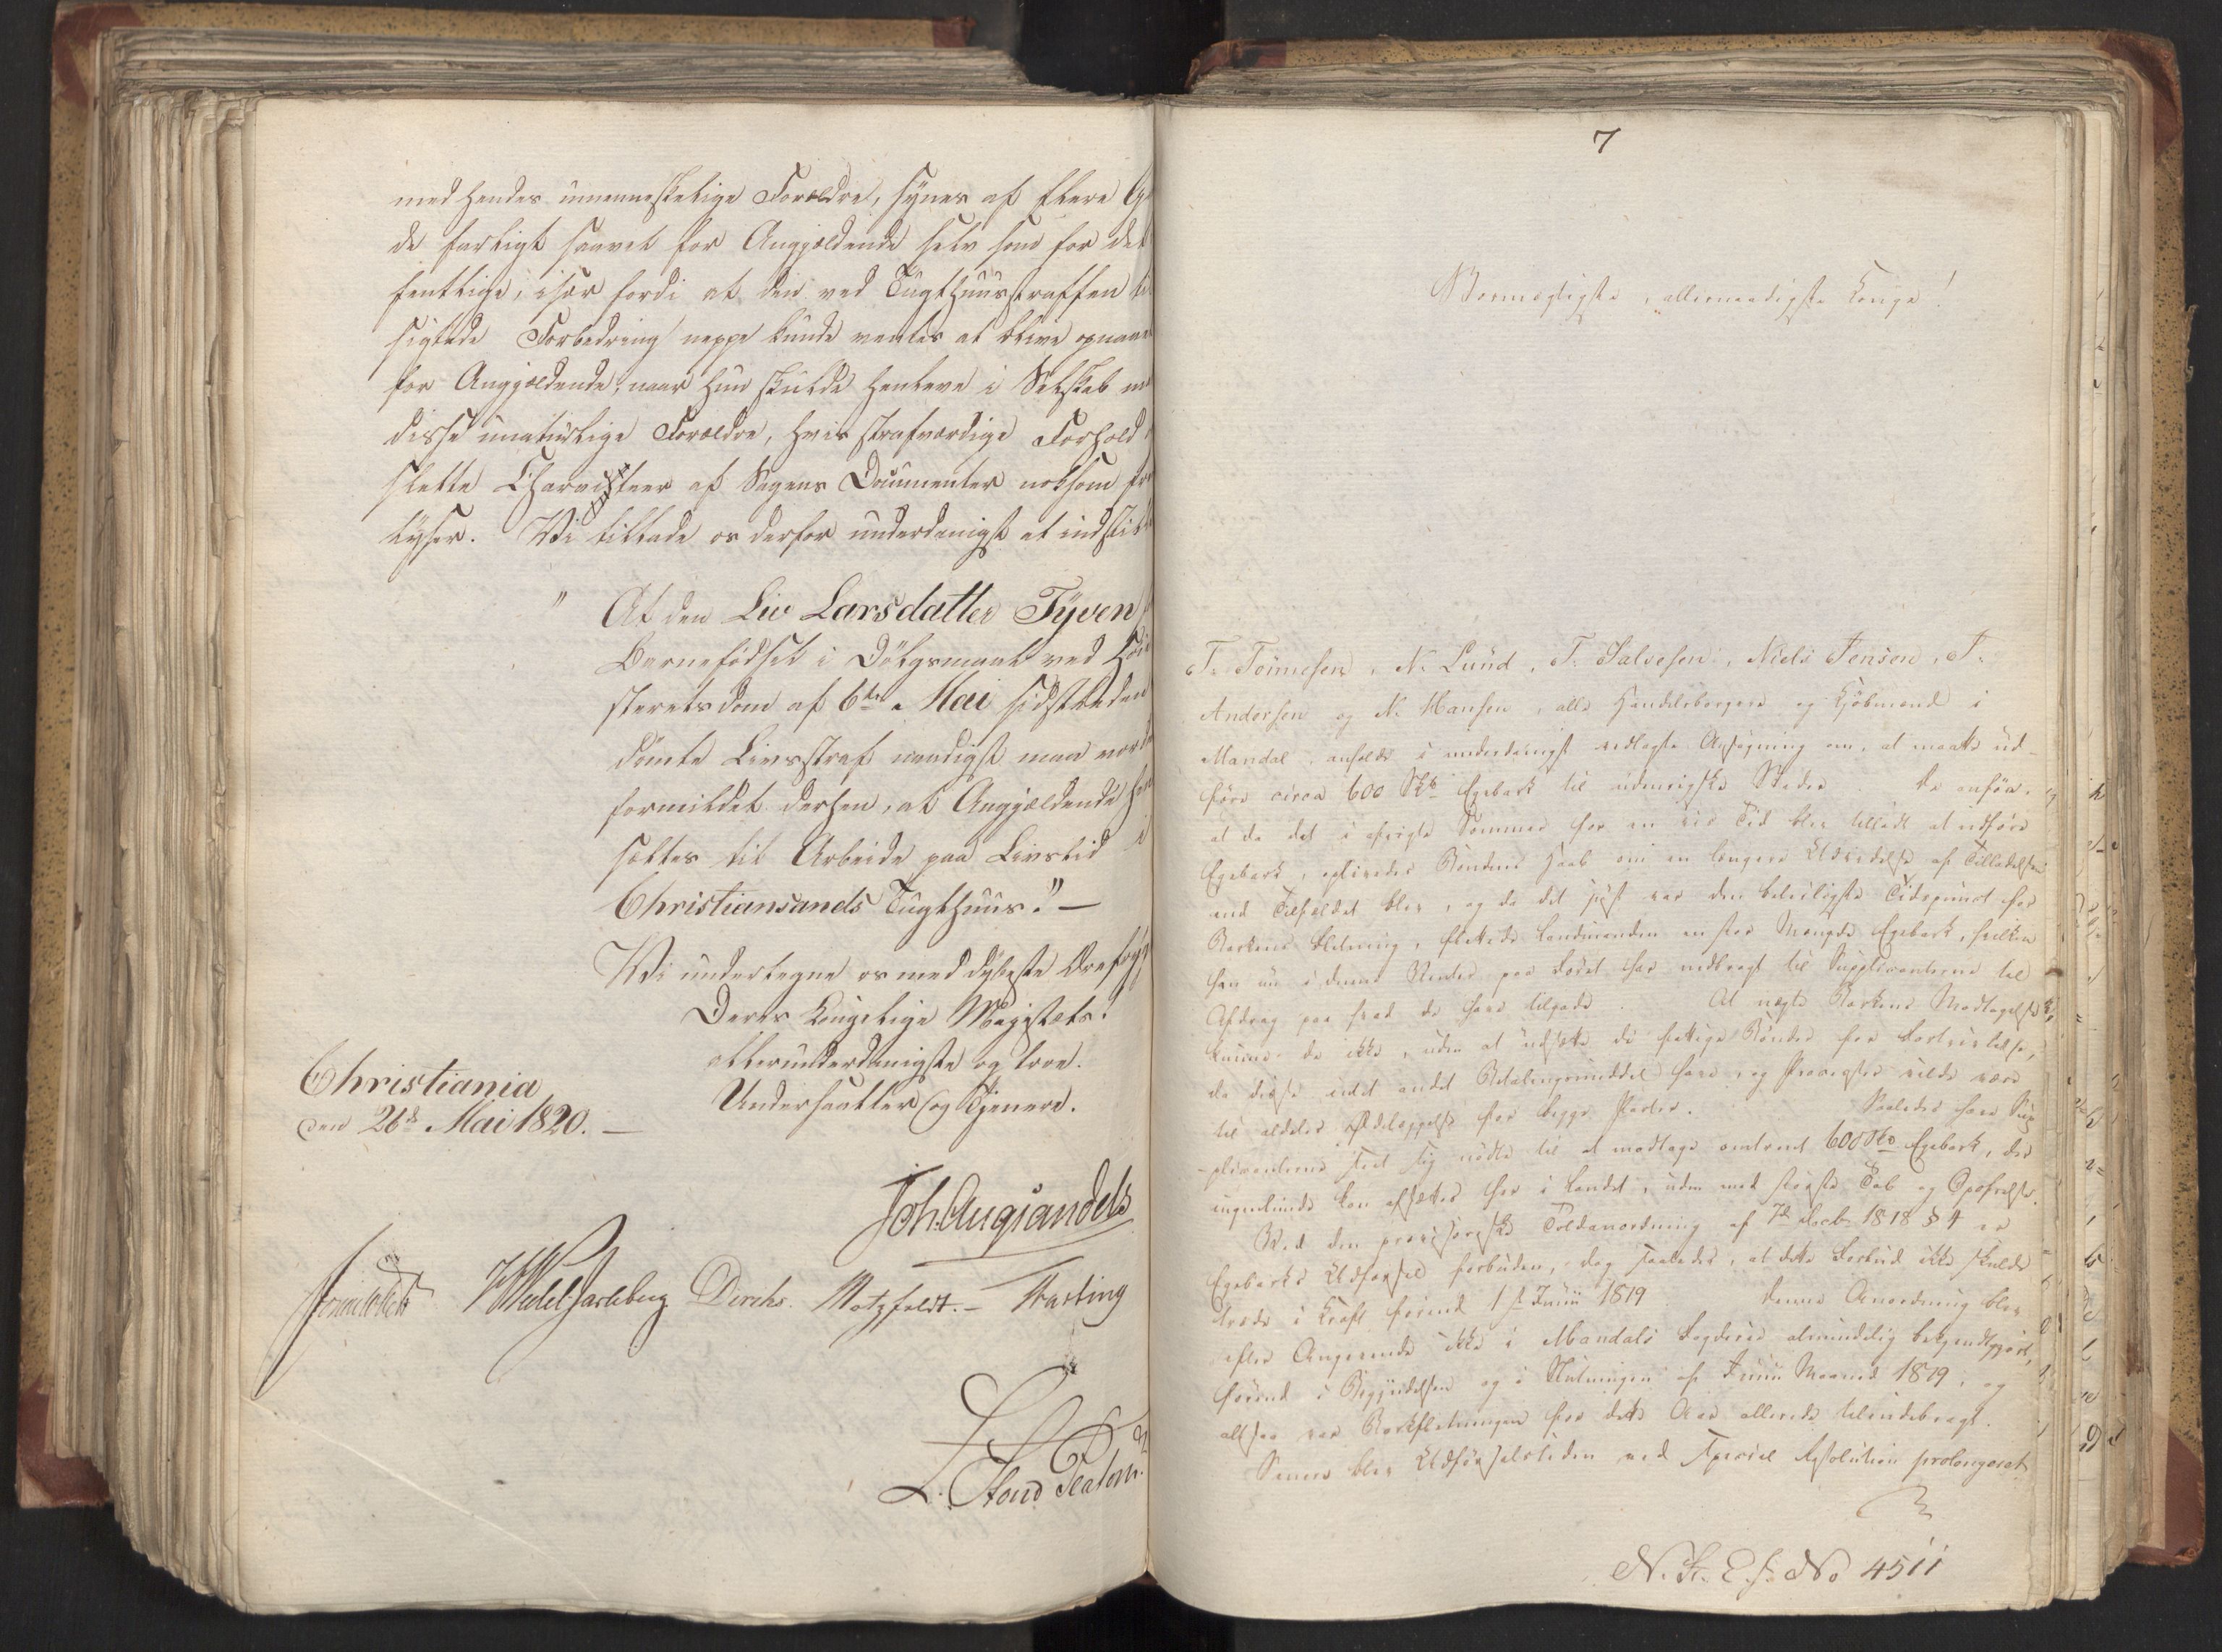 med hendes umenneskelige Forældre, synes af flere
de farligt saavel for Angjældende selv som for det
fentlige, især fordi at den ved Tugthuusstraffen
sigtede Forbedring neppe kunde ventes at blive opnaaet
for Angjældende, naar hun skulde henleve i Selskab
disse unaturlige Forældre, hvis strafværdige Forhold
slette Characteer af Sagens Documenter noksom
lyser. Vi tillade os derfor underdanigst at indstil
" At den Liv Larsdatter Tyven
Barnefödsel i Dölgsmaal ved Höi
steretsdom af 6te Mai sidstleden
dömte Livsstraf naadigst maa vorde
formildet derhen, at Angjældende
sættes til Arbeide paa Livstid i
Christiansands Tugthuus." —
Vi undertegne os med dybeste Ærefrygt
Deres Kongelige Majestæts
allerunderdanigste og troe
Undersaatter og Tjenere.
Christiania
den 26de Mai 1820. —
Joh. Aug: Sandels
Sommerhielm HWedel Jarlsberg Diriks. Motzfeldt. — Fasting
L. Stoud Platou
7
Stormægtigste, allernaadigste Konge!
T. Tönnesen, N. Lund, T. Salvesen, Niels Jensen, T.
Andersen og N. Hansen, alle Handelsborgere og Kjöbmænd i
Mandal, anholde i underdanigst vedlagte Ansögning om, at maatte ud-
före circa 600 Sk℔ Egebark til udenrigske Steder. De anföre,
at da det i afvigte Sommer for en vis Tid blev tilladt at udföre
Egebark, oplivedes Bondens Haab om en længere Udvidelse af Tilladelsen
end Tilfældet blev, og da det just var den beleiligste Tidspunct for
Barkens Flekning, flekkede Landmanden en stor Mængde Egebark, hvilken
han nu i denne Vinter paa Födet har nedbragt til Supplicanterne til
Afdrag paa hvad de have tilgode. At nægte Barkens Modtagelse
kunne de ikke, uden at udsætte de fattige Bönder for Fortvivlelse,
da disse intet andet Betalingsmiddel have, og Processer vilde være
til aldeles Ödelæggelse for begge Parter. Saaledes have Sup
plicanterne seet sig nödte til at modtage omtrent 600 Sk℔ Egebark, der
ingenlunde kan afsættes her i Landet, uden med störste Tab og Opofrelse.
Ved den provisoriske Toldanordning af 7de Decbr 1818 § 4 er
Egebarks Udförsel forbuden, dog saaledes, at dette Forbud ikke skulde
træde i Kraft förend 1ste Junii 1819. Denne Anordning blev
efter Angivende ikke i Mandals Fogderie almindelig bekjendtgjort,
förend i Begyndelsen og i Slutningen af Junii Maaned 1819, og
altsaa var Barkflekningen for dette Aar allerede tilendebragt.
Senere blev Udförselstiden ved Speciel Resolution prolongeret
N. St. E. f. No 4511